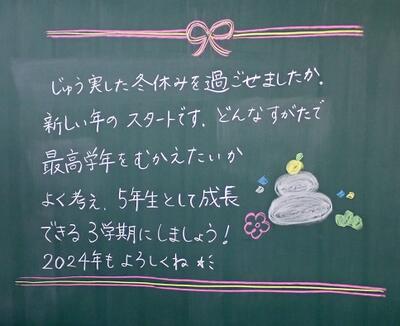 じゅう実した冬休みを過ごせましたか。
新しい年のスタートです。どんなすがたで
最高学年をむかえたいか
よく考え、5年生として成長
できる3学期にしましょう!
2024年もよろしくね